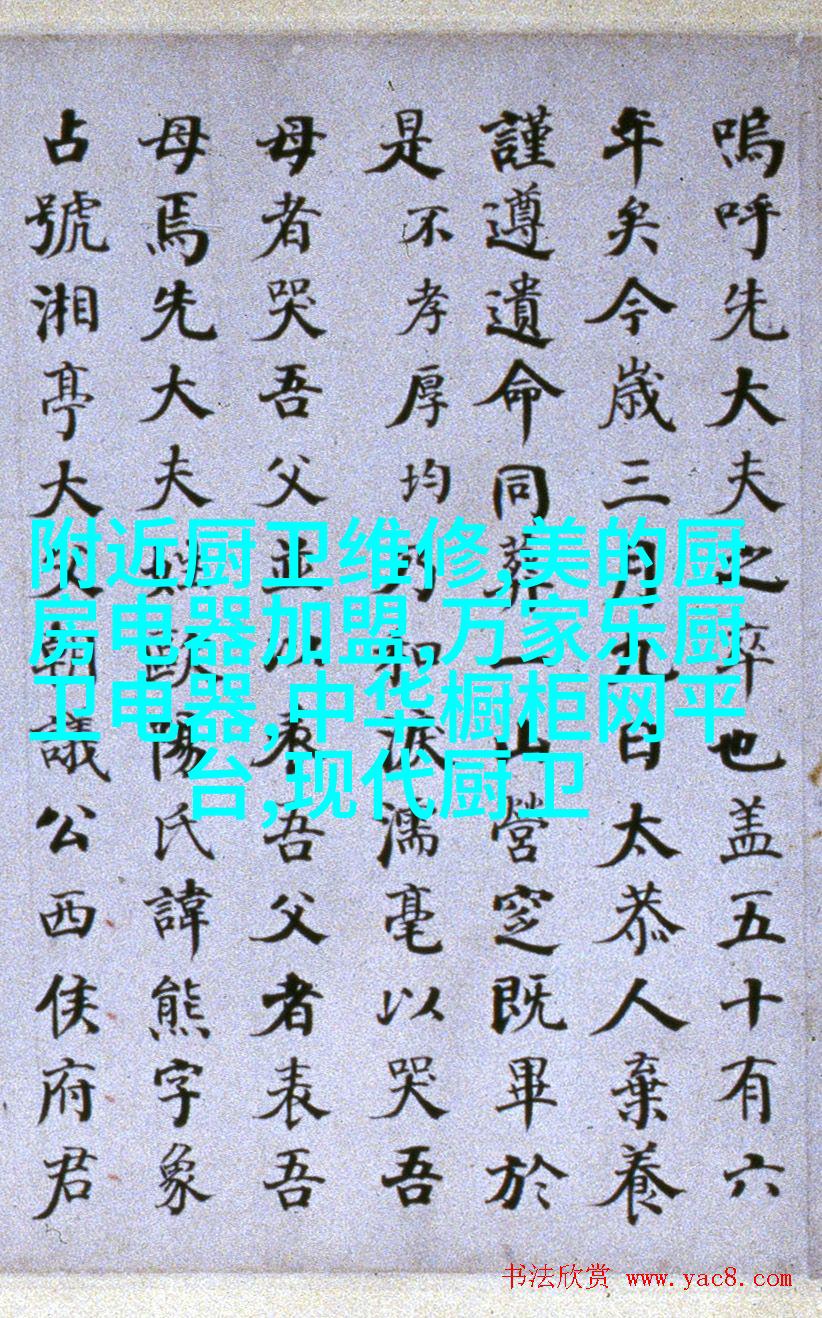 嗚呼先大夫之卒也盖五十有六
年矣今歲三月九日太恭人棄養
謹遵遺命同葬一山營窆既畢於
是不孝厚均乃和淚濡毫以哭吾
母者哭吾父並以表吾父者表吾
母焉先大夫姓歐陽氏諱熊字象
占號湘亭大父朝議公西侯府君
附近厨卫维修,美的厨
房电器加盟,万家乐厨
卫电器,中华橱柜网平
台,现代厨卫
书法欣赏 www.yac8.com